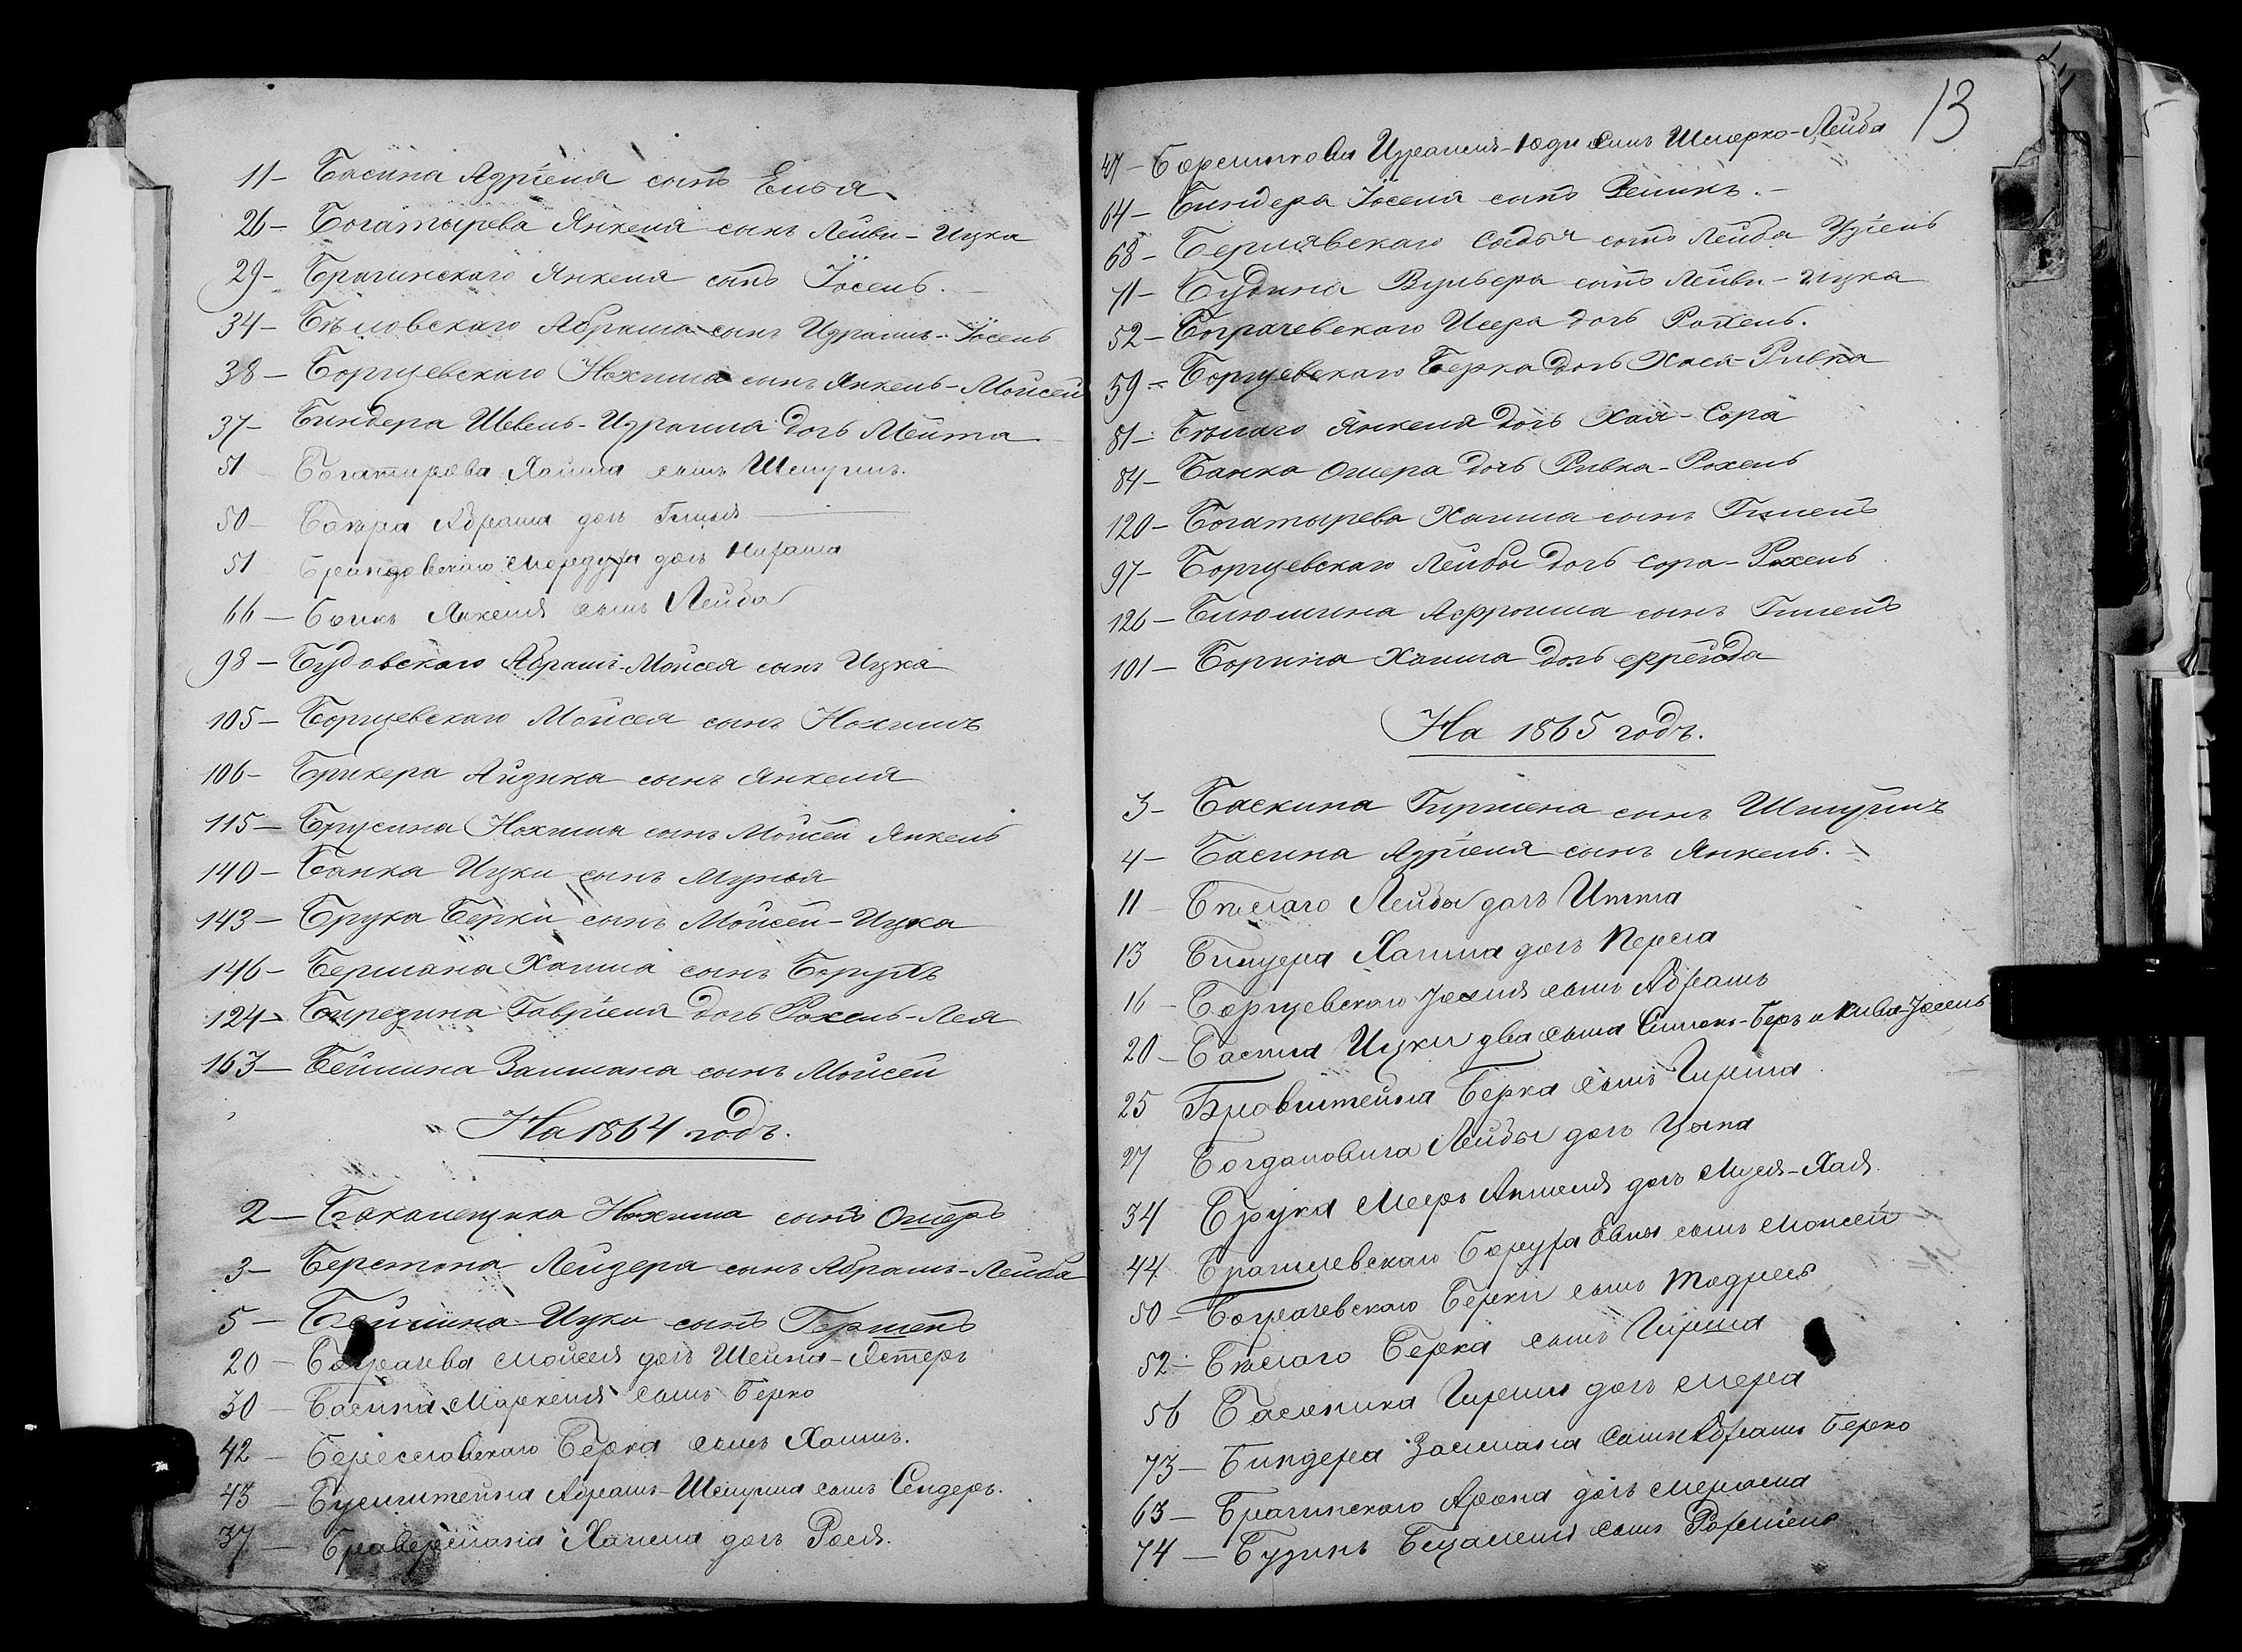 11 – Басина Азріеля сынъ Елья
26 – Богатырева Янкеля сынъ Лейви-Ицка
29 – Брагинскаго Янкеля сынъ Іосель.
34 – Бѣловскаго Абрама сынъ Израиль-Іосель
38 – Борщевскаго Нохима сынъ Янкель-Мойсей
37 – Биндера Шевель-Израиля дочь Мейта
51 Богатирова Хаима сынъ Шмуилъ.
50 – Абрама дочь
51 дочь
66 – Янкеля сынъ Лейба
98 – Будовскаго Абрамъ-Мойсея сынъ Ицка
105 – Борщевскаго Мойсея сынъ Нохимъ
106 – Брикера Айзика сынъ Янкеля
115 – Брусина Нохима сынъ Мойсей Янкель
140 – Банка Ицки сынъ Мунья
143 – Брука Берки сынъ Мойсей-Ицка
146 – Бермана Хаима сынъ Борухъ
124 – Бирезина Гавріеля дочь Рохель-Лея
163 – Бейлина Залмана сынъ Мойсей
На 1864 годъ.
2 – Бакалещика Нохима сынъ Ошеръ
3 – Берстона Лейзера сынъ Абрамъ-Лейба
5 – Бейлина Ицки сынъ Гершенъ
20 – Мойсея дочь Шейна-Эстеръ
30 – Басина Маркеля сынъ Берко
42 – Береславскаго Берка сынъ Хаимъ.
43 – Абрамъ-Шмуила сынъ Сендеръ.
37 – Бравермана Хаима дочь Рося.
13
47 – сынъ Шмерко-Лейба
64 – Биндера Іоселя сынъ
68 – Берлявскаго сынъ Лейба Узіель
71 – Будина Вульфа сынъ Лейви-Ицка
52 – Бограчевскаго Исера дочь Рохель.
59 – Борщевскаго Берка дочь Хася-Ривка
81 – Бѣлаго Янкеля дочь Хая-Сора
84 – Банка Ошера дочь Ривка-Рохель
120 – Богатырева Хаима сынъ Гилель
97 – Борщевскаго Лейбы дочь Сора-Рохель
126 – Бихмина Эфроима сынъ Гилель
101 – Борина Хаима дочь Фрейда
На 1865 годъ.
3 – Баскина Гиршена сынъ Шмуилъ
4 – Басина Азріеля сынъ Янкель.
11 – Бѣлаго Лейбы дочь Итта
13 Хаима дочь Перла
16 – Борщевскаго Іоселя сынъ Абрамъ
20 – Басина Ицки два сына Симхонъ-Беръ и Кива-Іосель
25 Бровштейна Берка сынъ Гирша
27 Богдановича Лейбы дочь Цына
34 Брука Мееръ Аншеля дочь Муся-Хая.
44 Брацлевскаго Боруха Овши сынъ Мойсей
50 – Бограчевскаго Берки сынъ Тодресъ
52 – Бѣлаго Берка сынъ Гирша
56 Гирши дочь Мера
73 – Биндера Залмана сынъ Абрамъ Берко
63 – Брагинскаго Арона дочь
74 – Бузинъ Бецалеля сынъ Рафаиелъ